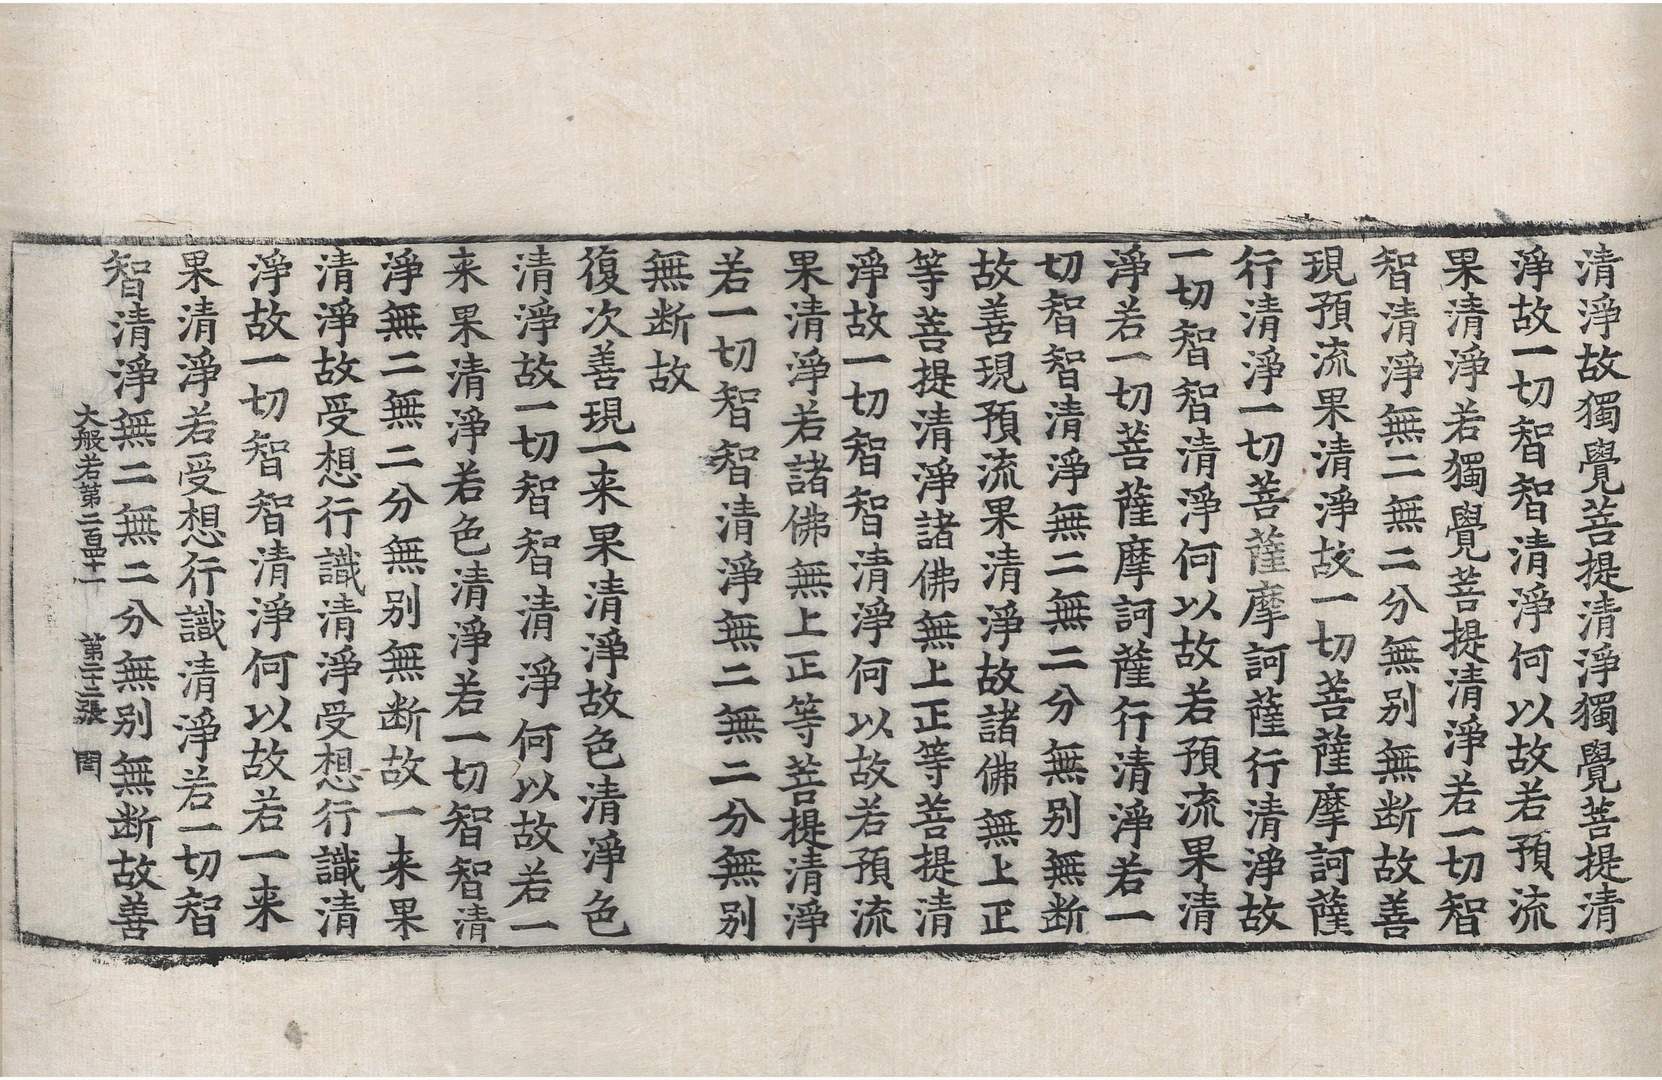 清淨故獨覺菩提清淨獨覺菩提清
淨故一切智智清淨何以故若預流
果清淨若獨覺菩提清淨若一切智
智清淨無二無二分無別無断故善
現預流果清淨故一切菩薩摩訶薩
行清淨一切菩薩摩訶薩行清淨故
一切智智清淨何以故若預流果清
淨若一切菩薩摩訶薩行清淨若一
切智智清淨無二無二分無別無断
故善現預流果清淨故諸佛無上正
等菩提清淨諸佛無上正等菩提清
淨故一切智智清淨何以故若預流
果清淨若諸佛無上正等菩提清淨
若一切智智清淨無二無二分無別
無断故
復次善現一来果清淨故色清淨色
清淨故一切智智清淨何以故若一
来果清淨若色清淨若一切智智清
淨無二無二分無別無断故一来果
清淨故受想行識清淨受想行識清
淨故一切智智清淨何以故若一来
果清淨若受想行識清淨若一切智
智清淨無二無二分無別無断故善
大般若第二百四十一 第二十二張 閏